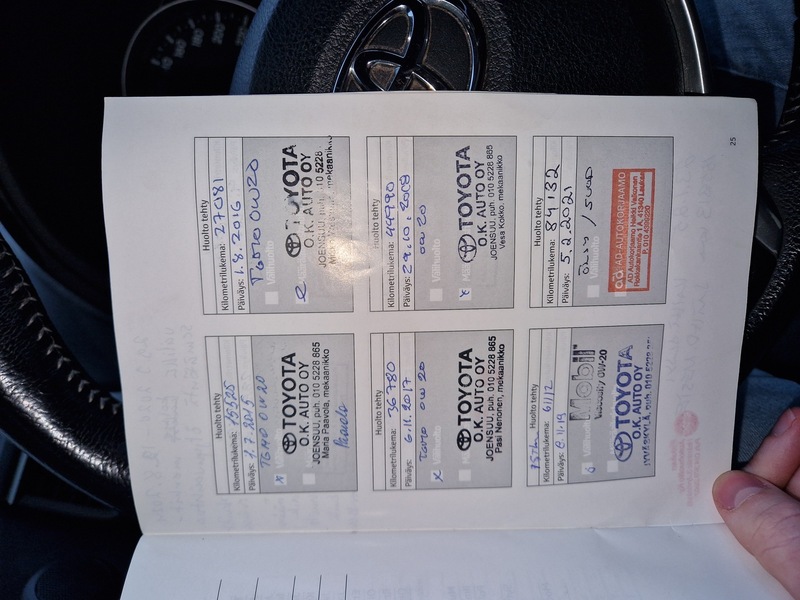 Huolto tehty
Kilometrilukema: 15525
Päiväys: 1.7.2015
TGMO 0W20
TOYOTA
O.K. AUTO OY
JOENSUU, puh. 010 5228 865
Maria Paavola, mekaanikko
Huolto tehty
Kilometrilukema: 27081
Päiväys: 1.8.2016
TGMO 0W20
Välihuolto
TOYOTA
O.K. AUTO OY
JOENSUU, puh. 010 5228
mekaanikko
Huolto tehty
Kilometrilukema: 36780
Päiväys: 6.11.2017
TGMO 0W20
TOYOTA
O.K. AUTO OY
JOENSUU, puh. 010 5228 865
Pasi Neronen, mekaanikko
Huolto tehty
Kilometrilukema: 44790
Päiväys: 29.10.2018
0W 20
Välihuolto
TOYOTA
O.K. AUTO OY
JOENSUU, puh. 010 5228 865
Vesa Kokko, mekaanikko
Huolto tehty
Kilometrilukema: 61112
Päiväys: 8.11.19
Mobil
Viscosity 0W-20
TOYOTA
O.K. AUTO OY
JYVÄSKYLÄ, puh. 010 5228
Huolto tehty
Kilometrilukema: 84132
Päiväys: 5.2.2021
ÖLJY / SUOD
Välihuolto
AD-AUTOKORJAAMO
AD Autokorjaamo Heikki Vehonen
P. 010
25